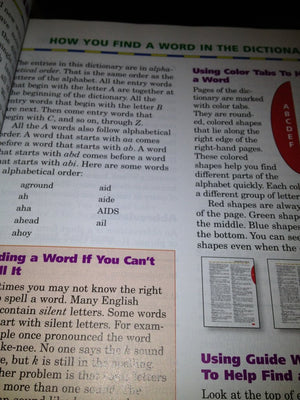 HOW YOU FIND A WORD IN THE DICTIONA
he entries in this dictionary are in alpha-
etical order. That is the same order as the
etters of the alphabet. All the entry words
hat begin with the letter A are together at
he beginning of the dictionary. All the
ntry words that begin with the letter B
re next. Then come entry words that
egin with C, and so on, through Z.
All the A words also follow alphabetical
rder. A word that starts with aa comes
efore a word that starts with ab. A word
hat starts with abd comes before a word
hat starts with abi. Here are some words
alphabetical order:
aground aid
ah aide
aha AIDS
ahead ail
ahoy
ding a Word If You Can't
ll It
times you may not know the right
o spell a word. Many English
contain silent letters. Some words
art with silent letters. For exam-
ple once pronounced the word
ke-nee. No one says the k sound
e, but k is still in the spelling.
her problem is that letters
more than one sound. The
Using Color Tabs To
a Word
Pages of the dic-
tionary are marked
with color tabs.
They are round-
ed, colored shapes
that lie along the
right edge of the
right-hand pages.
These colored
shapes help you find
different parts of the
alphabet quickly. Each col
a different group of letter
Red shapes are alway
of the page. Green shap
the middle. Blue shapes
the bottom. You can see
shapes even when the
Using Guide W
To Help Find a
Look at the top of